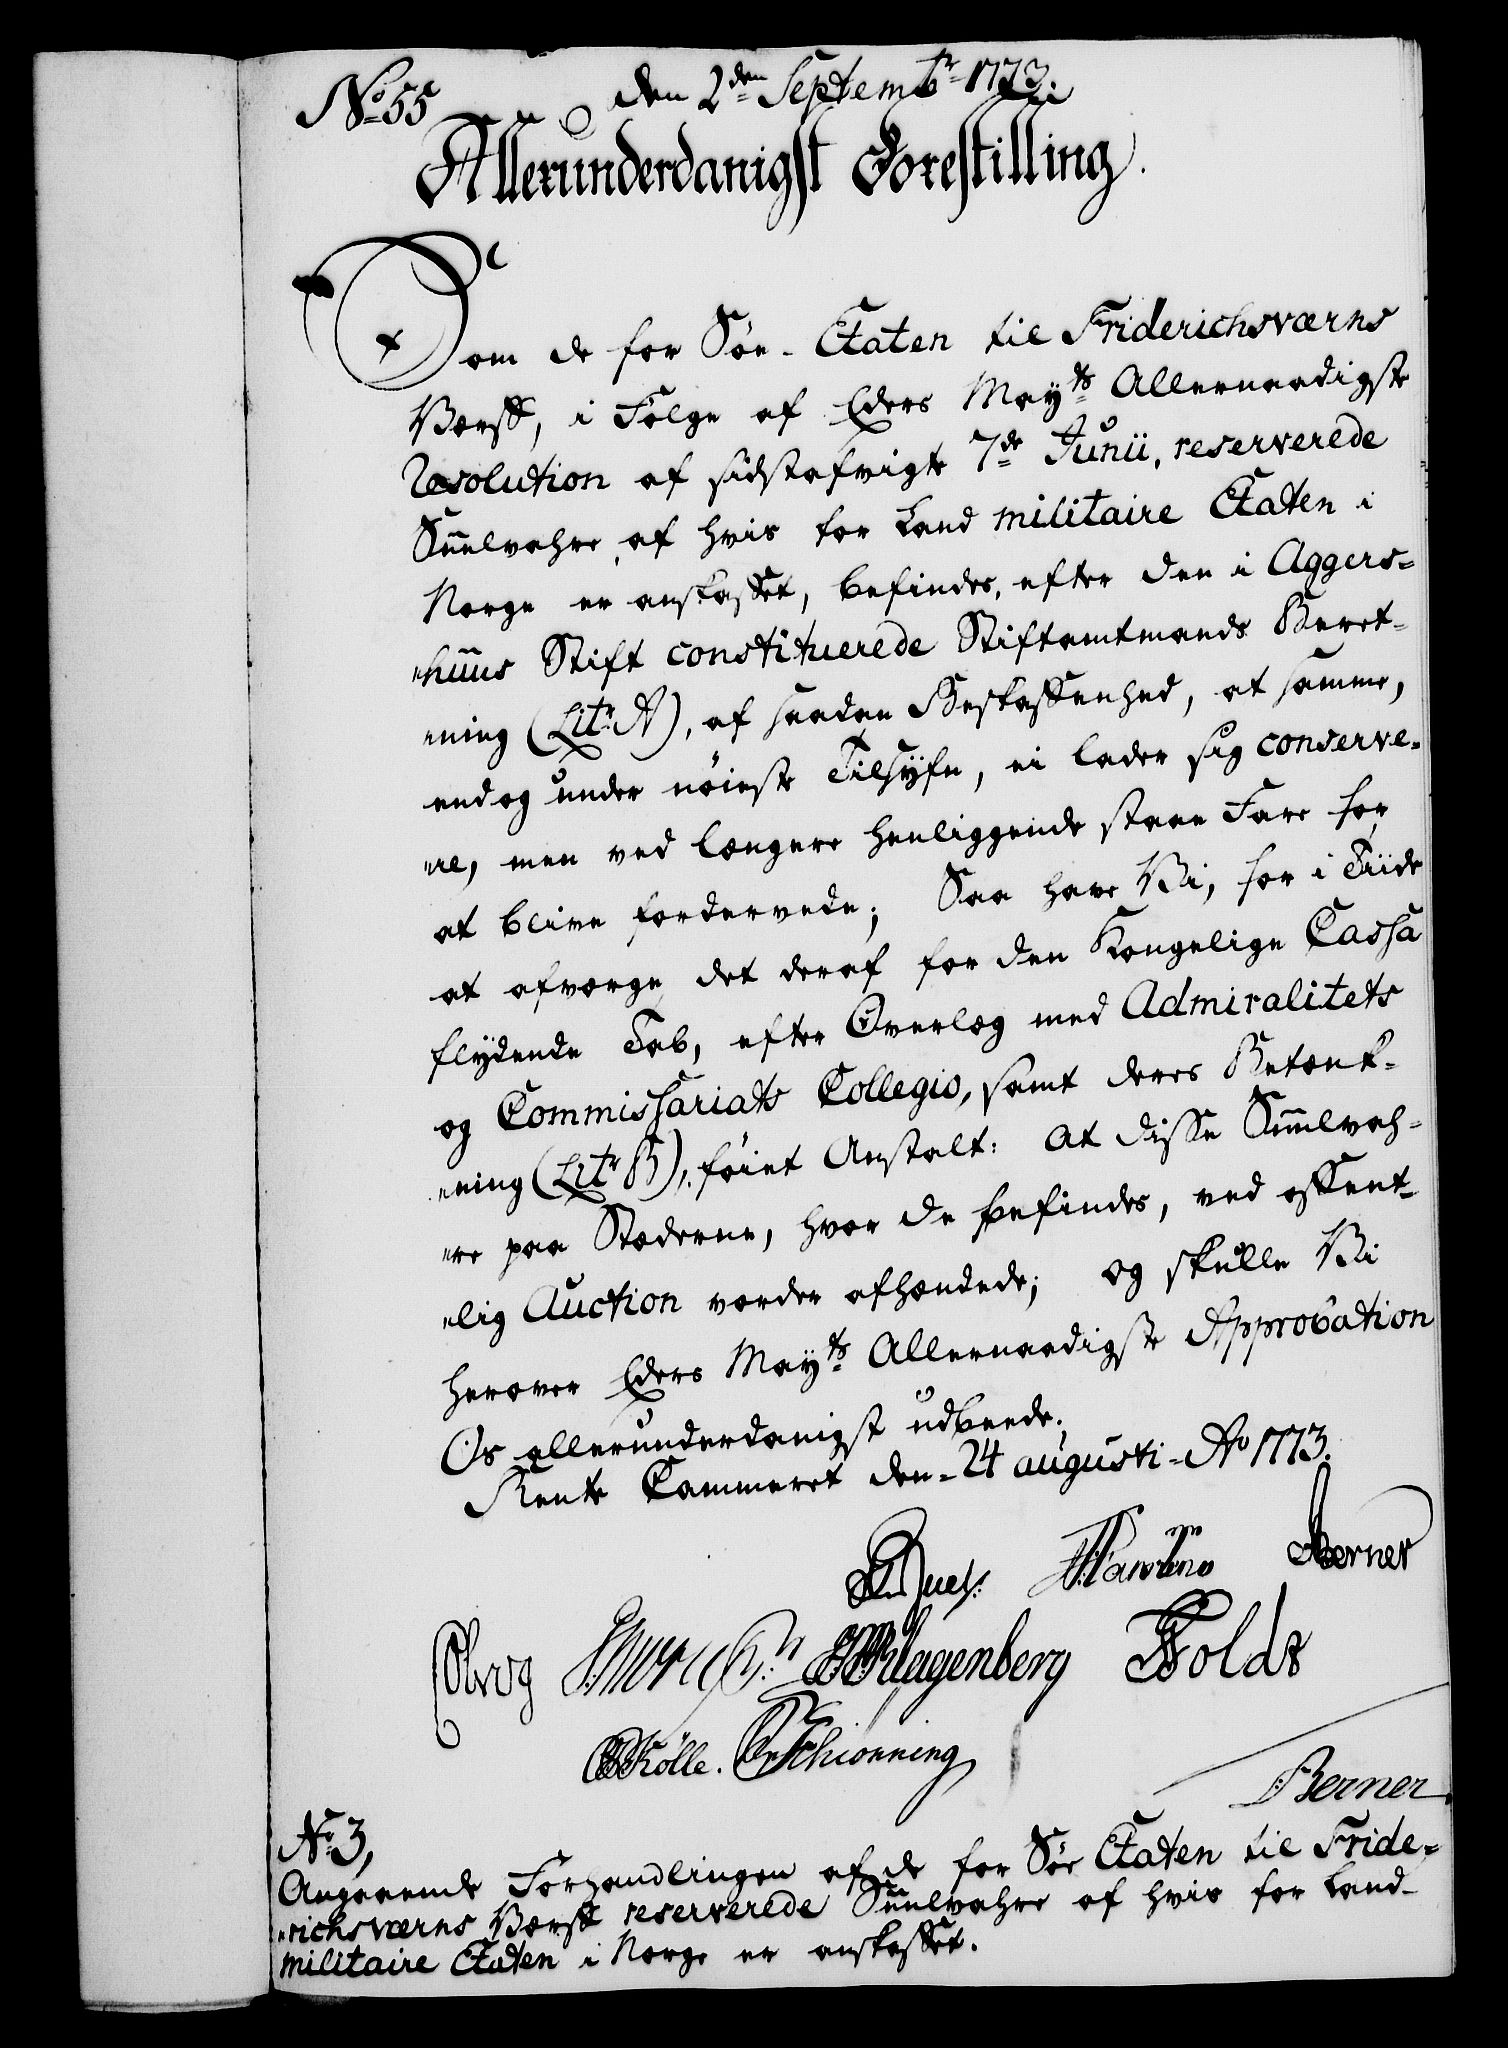 No 55
den 2den Septembr 1773.
Allerunderdanigst Forestilling.
Som de for Söe-Etaten til Friderichsværns
Værft, i Følge af Eders Mayts Allernaadigste
Resolution af sidstafvigte 7de Junii, reserverede
Suulvahre, af hvis for Land militaire Etaten i
Norge er anskaffet, befindes, efter den i Aggers-
huus Stift constituerede Stiftamtmands Beret-
ning (Litr A), af saadan Beskaffenhed, at samme,
endog under nöieste Tilsyfn, ei lader sig conserve-
re, men ved længere henliggende staae Fare for
at blive fordervede; Saa have Vi, for i Tiide
at afværge det deraf for den Kongelige Cassa
flydende Tab, efter Overlæg med Admiralitets
og Commissariats Collegio, samt deres Betænk-
ning (Litr B), föiet Anstalt: At disse Suulvah-
re paa Stæderne, hvor de befindes, ved offent-
lig Auction vorder afhændede; og skulle Vi
herover Eders Mayts Allernaadigste Approbation
Os allerunderdanigst udbeede.
Rente Cammeret den 24 augusti Ao 1773.
Berner
Klagenberg Holdt
Kölle. Schionning
Berner
No 3,
Angaaende Forhandlingen af de for Söe Etaten til Fride-
richsværns Værft reserverede Suulvahre af hvis for Land-
militaire Etaten i Norge er anskaffet.